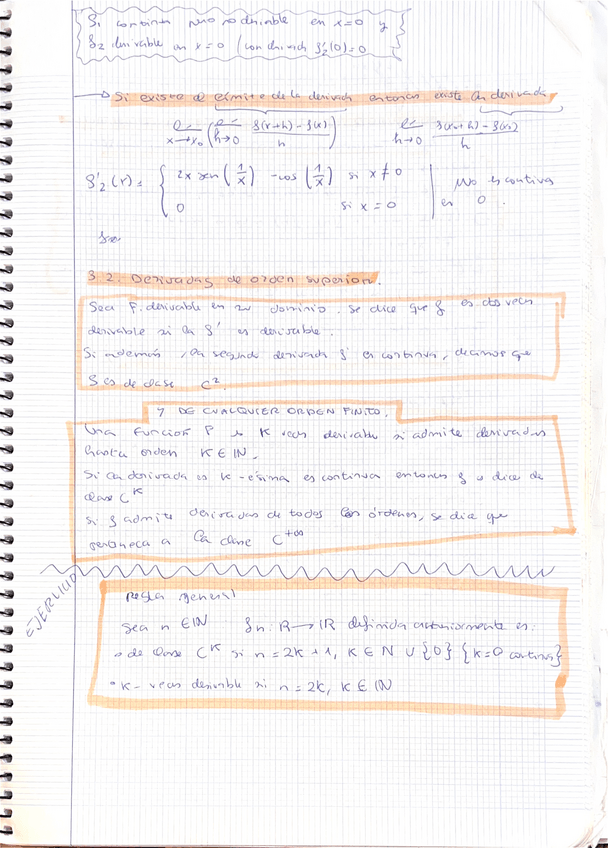 f₁ continua pero no derivable en x=0 y
f₂ derivable en x=0 (con derivada f₂'(0)=0
→ Si existe el límite de la derivada entonces existe la derivada
lim x→x₀ (lim h→0 f(x+h)-f(x) / h) lim h→0 f(x₀+h)-f(x₀) / h
f₂'(x) = { 2x sen(1/x) - cos(1/x) si x≠0 | No es continua
0 si x=0 | en 0.
3.2. Derivadas de orden superior.
Sea f derivable en su dominio. Se dice que f es dos veces
derivable si la f' es derivable.
Si además, la segunda derivada f es continua, decimos que
f es de clase C².
Y DE CUALQUIER ORDEN FINITO.
Una función f es K veces derivable si admite derivadas
hasta orden K∈IN.
Si la derivada es K-ésima es continua entonces f se dice de
clase C^K
Si f admite derivadas de todos los órdenes, se dice que
pertenece a la clase C^+∞
EJERCICIO
Regla general
Sea n∈IN fn: IR → IR definida anteriormente es:
• de clase C^K si n=2K+1, K∈N∪{0} {K=0 continua}
• K-veces derivable si n=2K, K∈IN